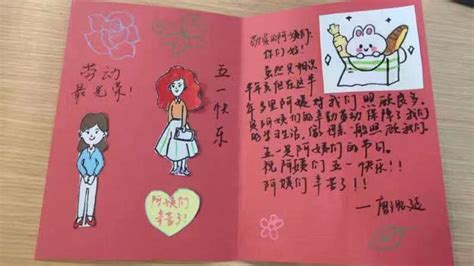 劳动
最光荣！
五一快乐
阿姨们
辛苦了！
敬爱的阿姨们：
你们好！
虽然只相识
半年多但在这半
年多里阿姨对我们照顾良多。
阿姨们的辛勤劳动保障了我们
的学习生活，像一般照顾我们。
五一是阿姨们的节日。
祝阿姨们五一快乐！！
阿姨们辛苦了！！